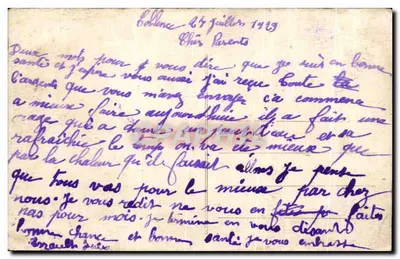 Coblence 27 juillet 1929
Cher Parents
Deux mots pour vous dire que je suis en bonne
santé et j'espère vous aussi j'ai reçue toute
l'argent que vous m'avez envoyez ça commence
a mieux faire aujourd'huie il y a fait une
rage qu'a deux et sa
rafraichie le temp on va de mieux que
par la chaleur qu'il faisait allons je pense
que tous vas pour le mieux par chez
nous. Je vous redit ne vous en faites
pas pour mois. Je termine en vous désirant
bonne chance et bonne santé je vous embrasse